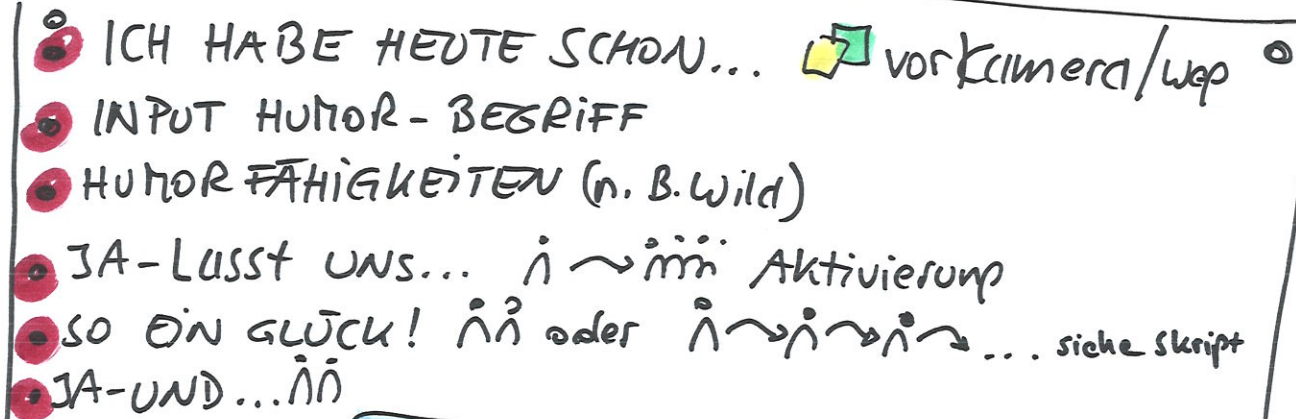 ICH HABE HEUTE SCHON... vor Kamera/weg
INPUT HUMOR-BEGRIFF
HUMOR FÄHIGKEITEN (n. B. Wild)
JA-Lasst UNS... Aktivierung
SO EIN GLÜCK! oder ... siehe Skript
JA-UND...